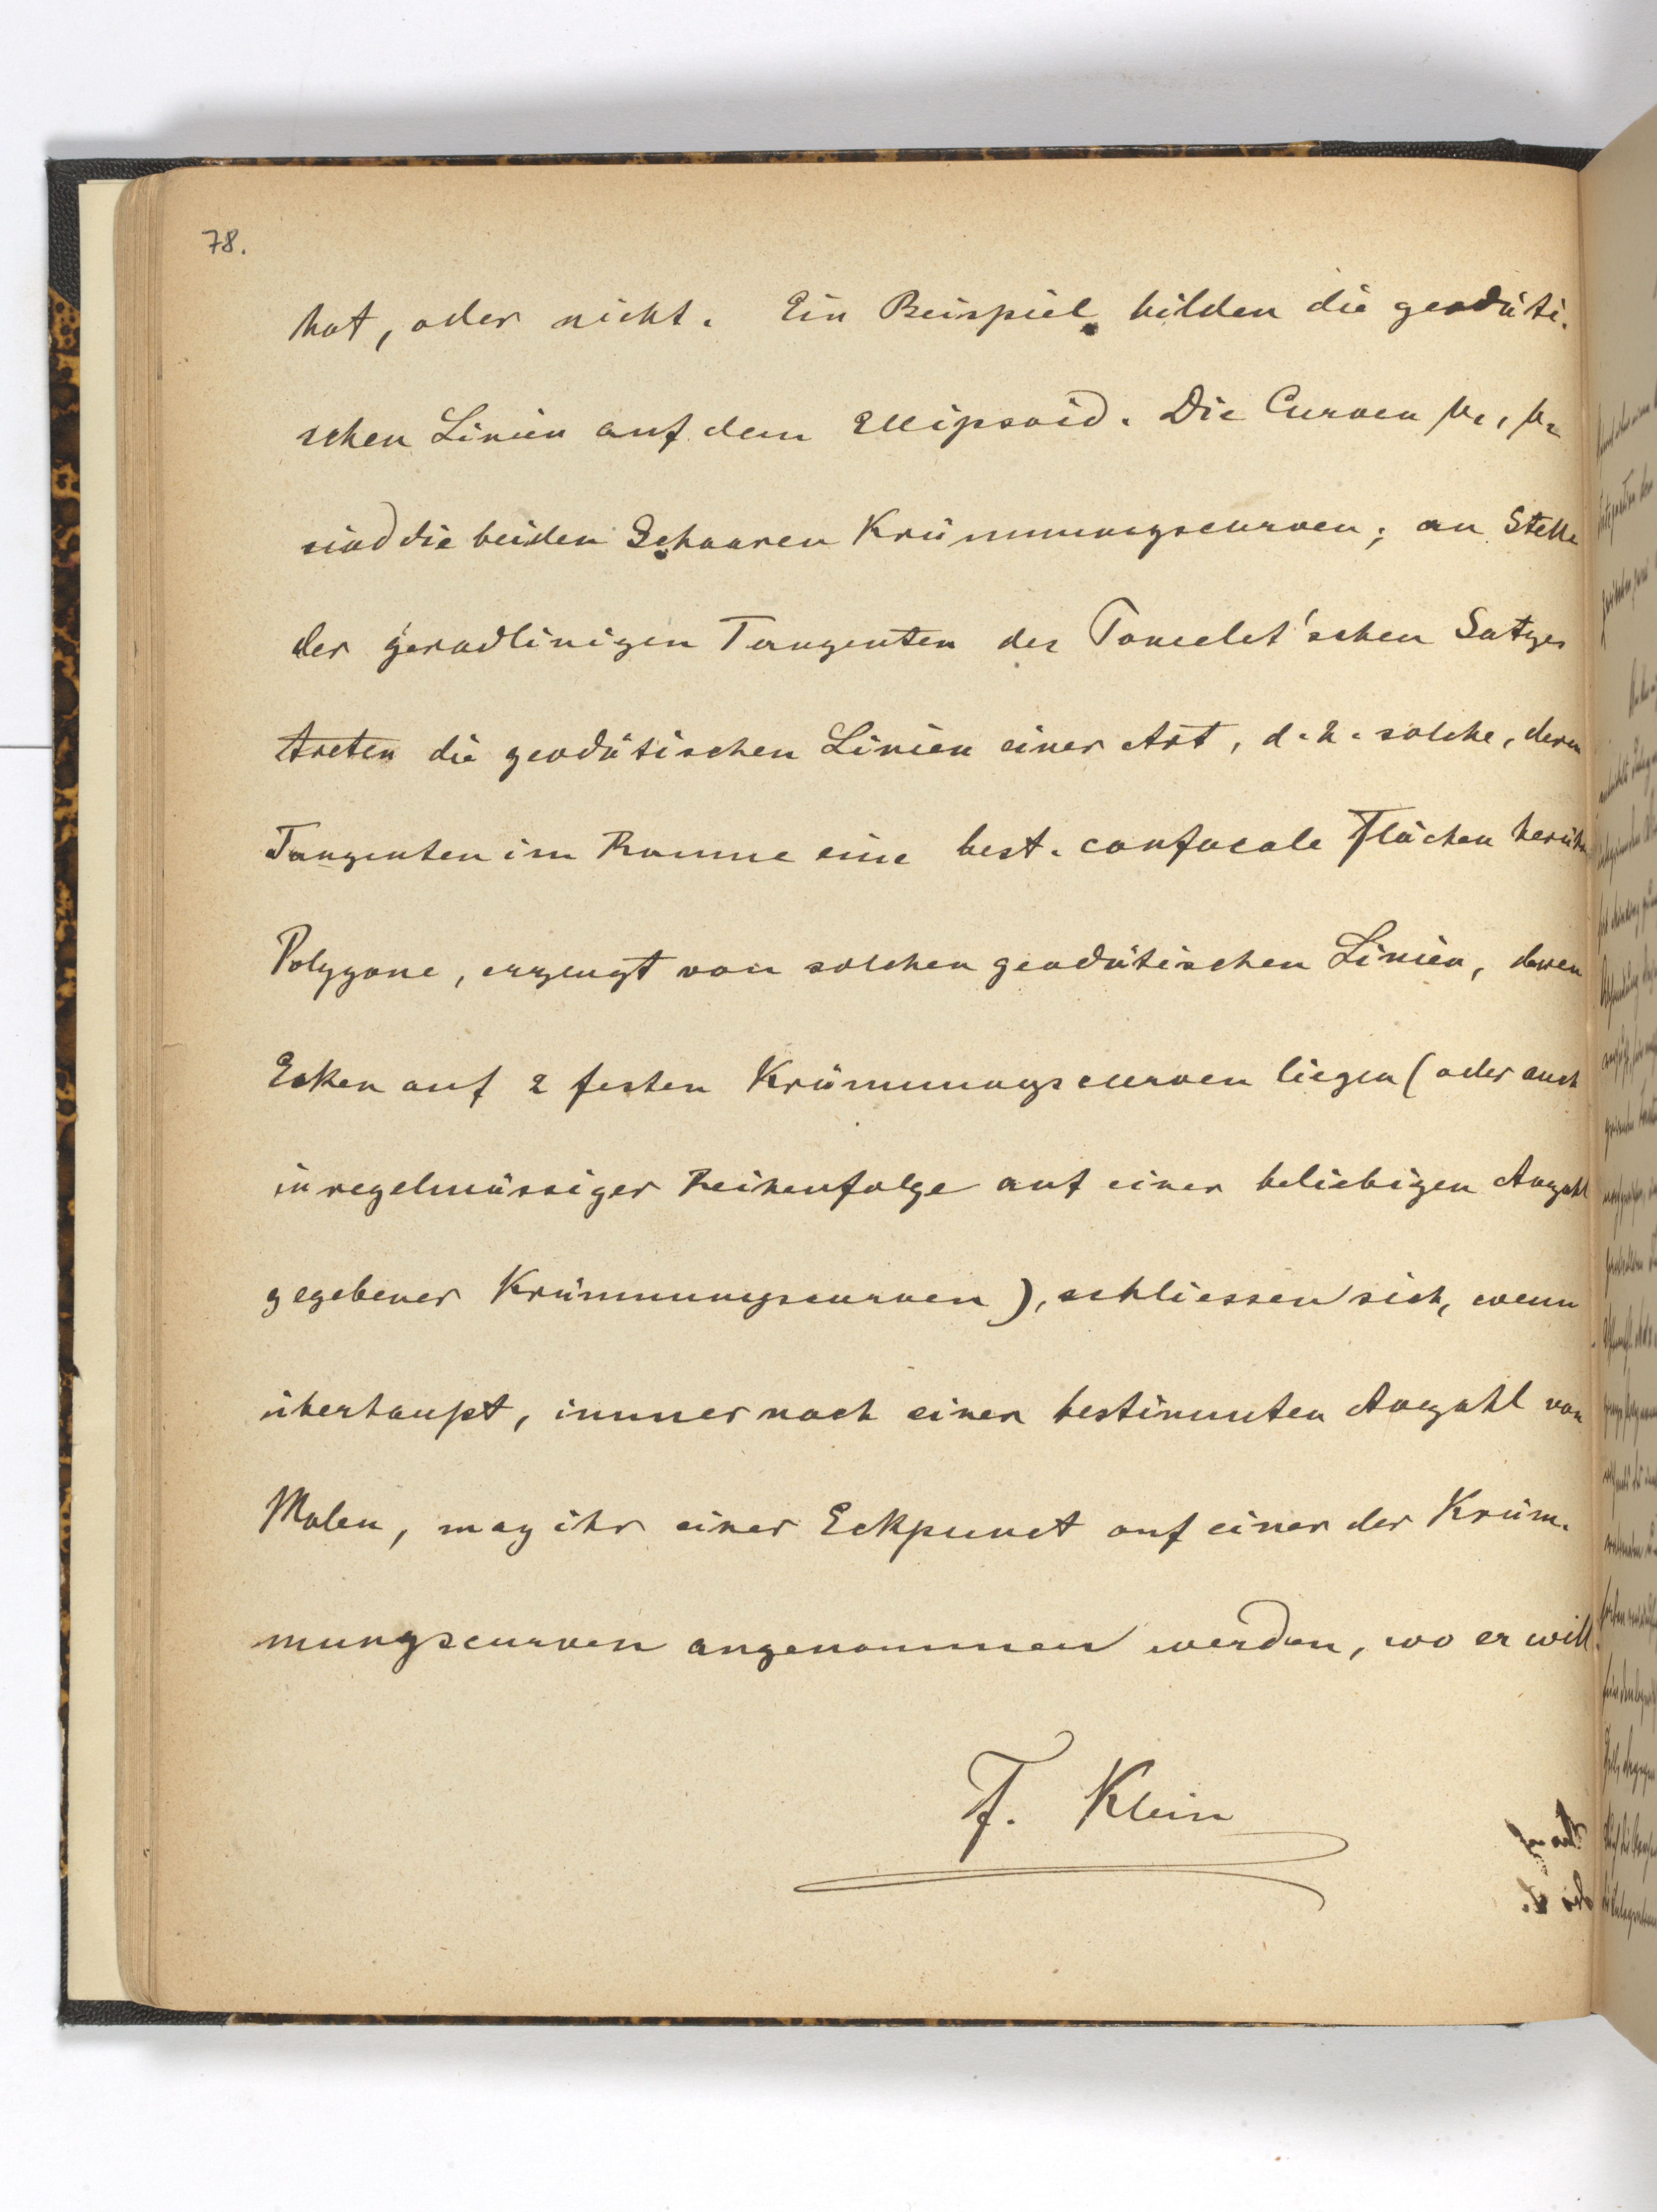 78.
hat, oder nicht. Ein Beispiel bilden die geodäti-
schen Linien auf dem Ellipsoid. Die Curven μ₁, μ₂
sind die beiden Schaaren Krümmungscurven; an Stelle
der geradlinigen Tangenten des Poncelet'schen Satzes
treten die geodätischen Linien einer Art, d. h. solche, deren
Tangenten im Raume eine best. confocale Flächen berühr
Polygone, erzeugt von solchen geodätischen Linien, deren
Ecken auf 2 festen Krümmungscurven liegen (oder auch
in regelmässiger Reihenfolge auf einer beliebigen Anzahl
gegebener Krümmungscurven), schliessen sich, wenn
überhaupt, immer nach einer bestimmten Anzahl von
Malen, mag ihr einer Eckpunct auf einer der Krüm-
mungscurven angenommen werden, wo er will.
F. Klein